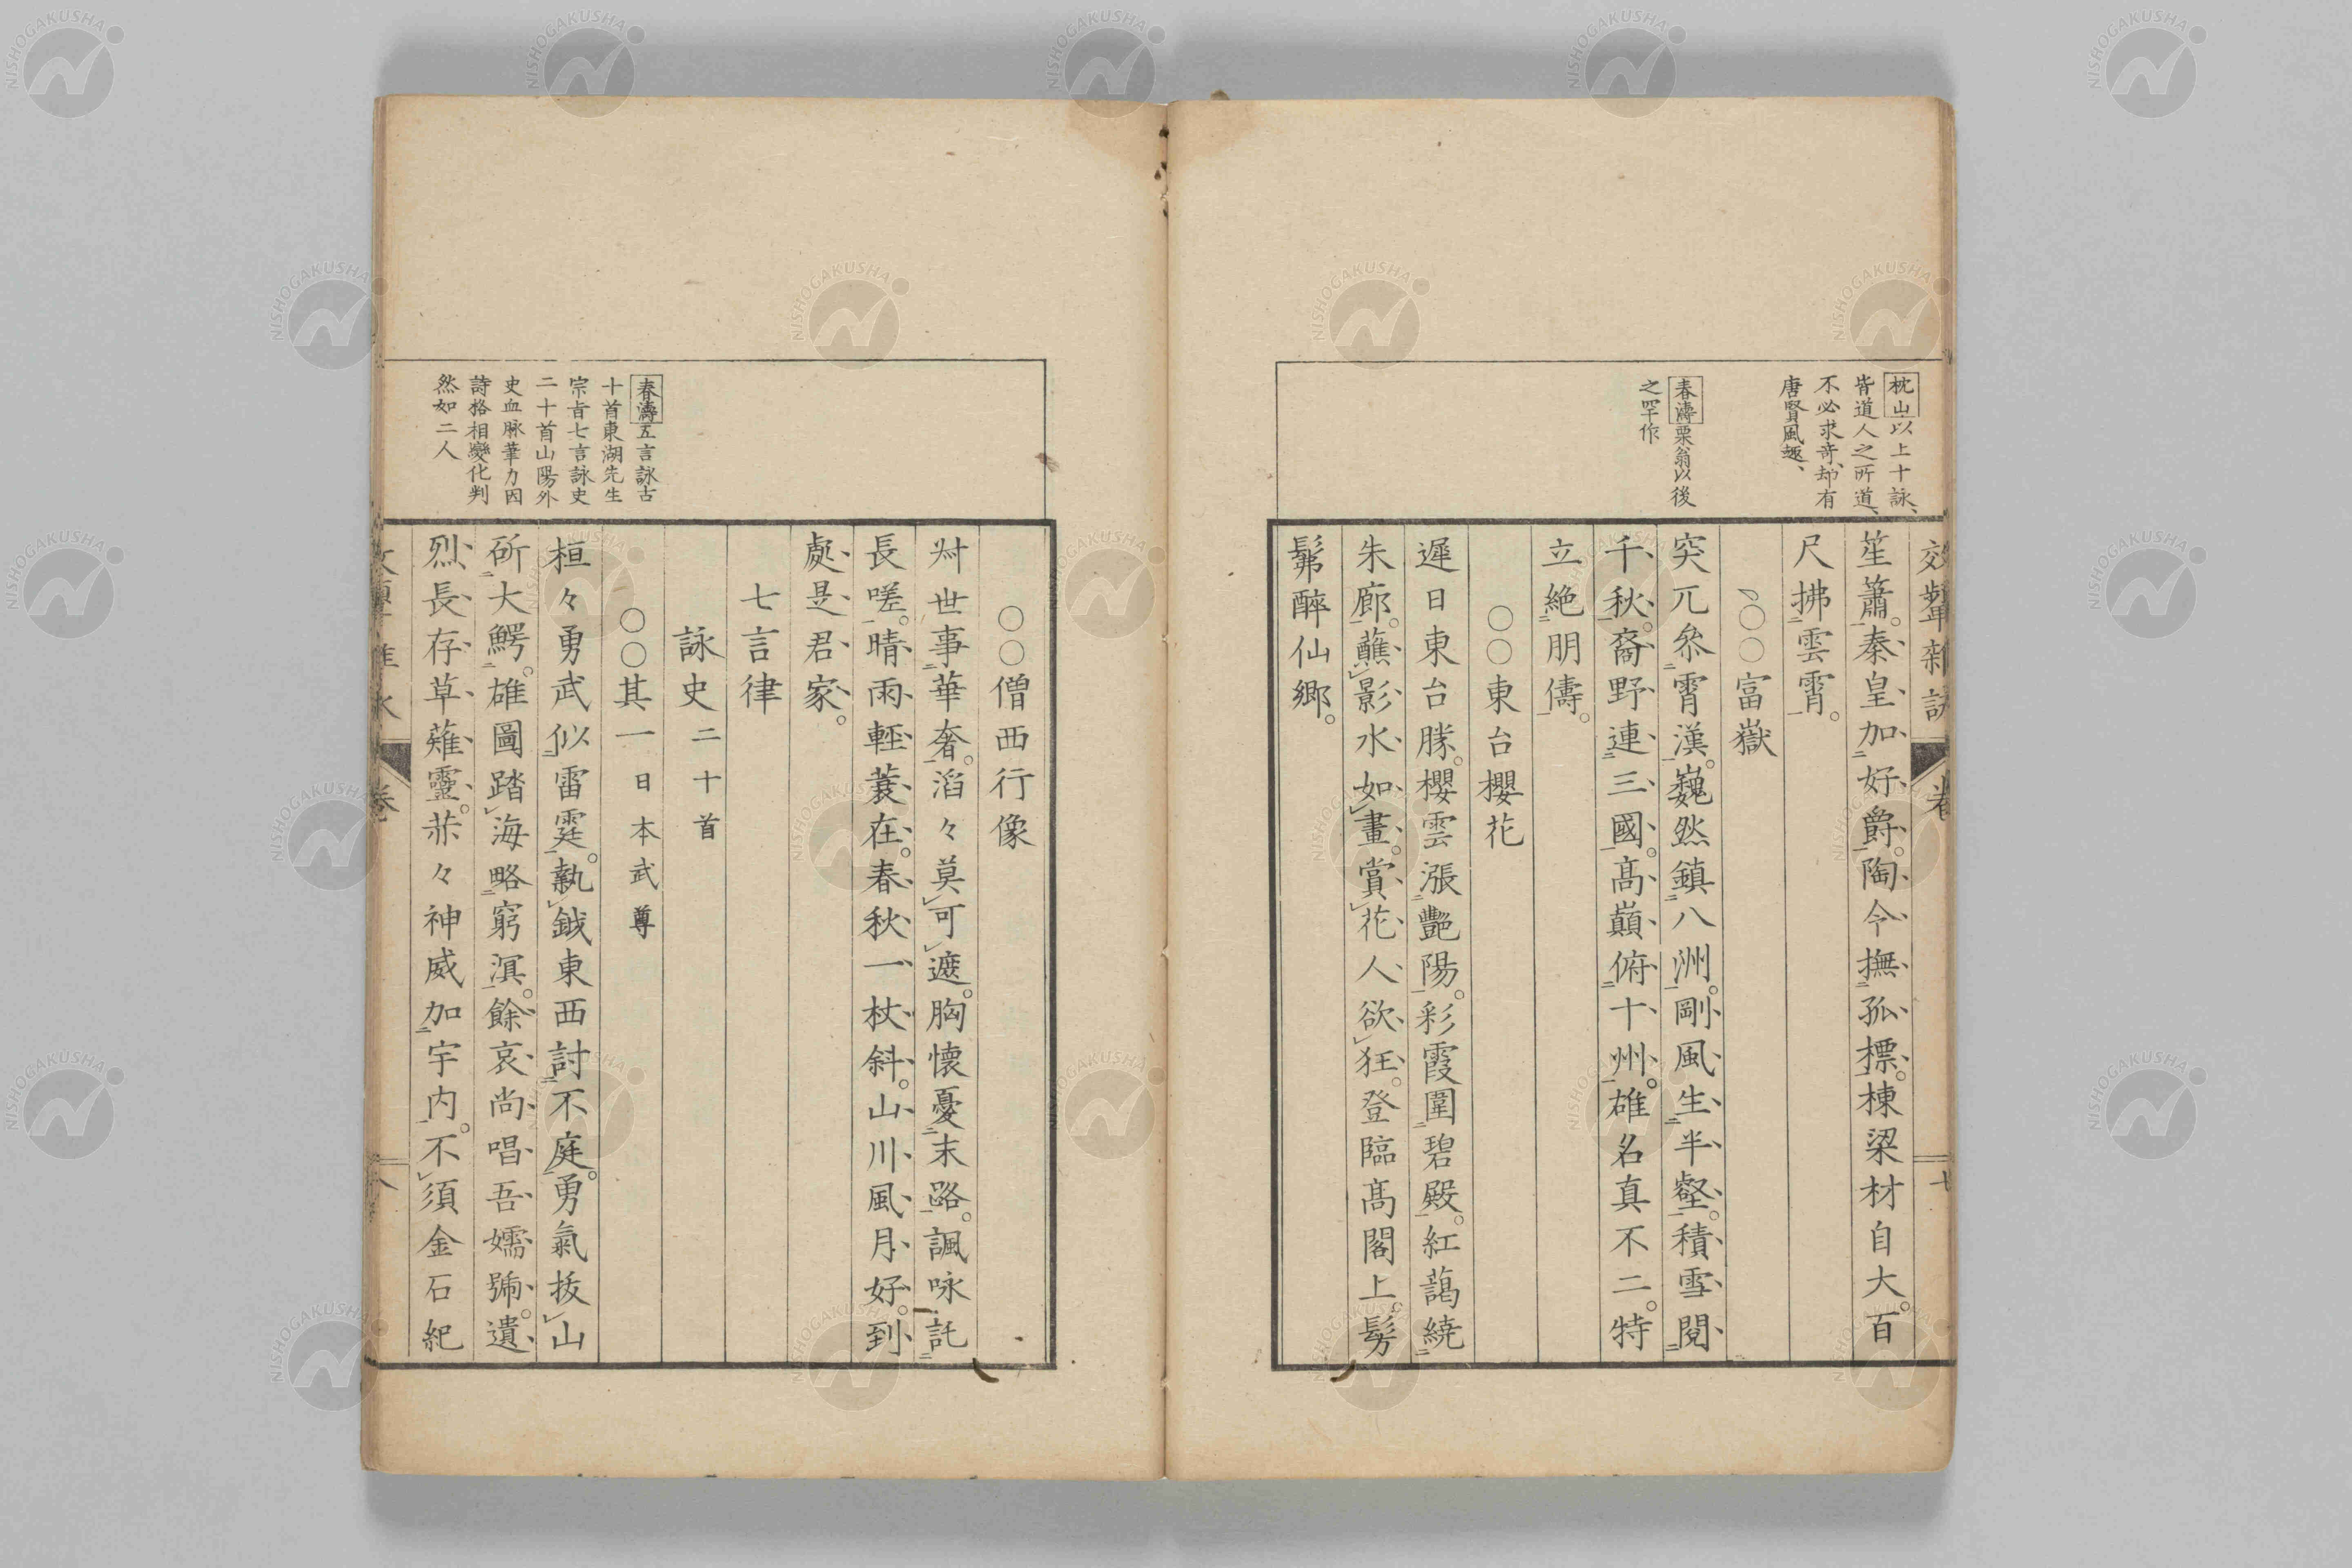 枕山以上十詠、
皆道人之所道、
不必求奇、却有
唐賢風趣、
春濤栗翁以後
之罕作
效顰雜詠
笙簫。秦皇加好爵。陶令撫孤標。棟梁材自大。百
尺拂雲霄。
○○富嶽
突兀參霄漢。巍然鎮八洲。剛風生半壑。積雪閱
千秋。裔野連三國。高巔俯十州。雄名真不二。特
立絶朋儔。
○○東台櫻花
遲日東台勝。櫻雲漲艷陽。彩霞圍碧殿。紅藹繞
朱廊。蘸影水如畫。賞花人欲狂。登臨高閣上。髣
髴醉仙鄉。
春濤五言詠古
十首東湖先生
宗旨七言詠史
二十首山陽外
史血脉筆力因
詩格相變化判
然如二人
○○僧西行像
艸世事華奢。滔々莫可遮。胸懷憂末路。諷咏託
長嗟。晴雨輕蓑在。春秋一杖斜。山川風月好。到
處是君家。
七言律
詠史二十首
○○其一日本武尊
桓々勇武似雷霆。執鉞東西討不庭。勇氣拔山
斫大鰐。雄圖踏海略窮溟。餘哀尚唱吾嬬號。遺
烈長存草薙靈。赫々神威加宇内。不須金石紀
NISHOGAKUSHA